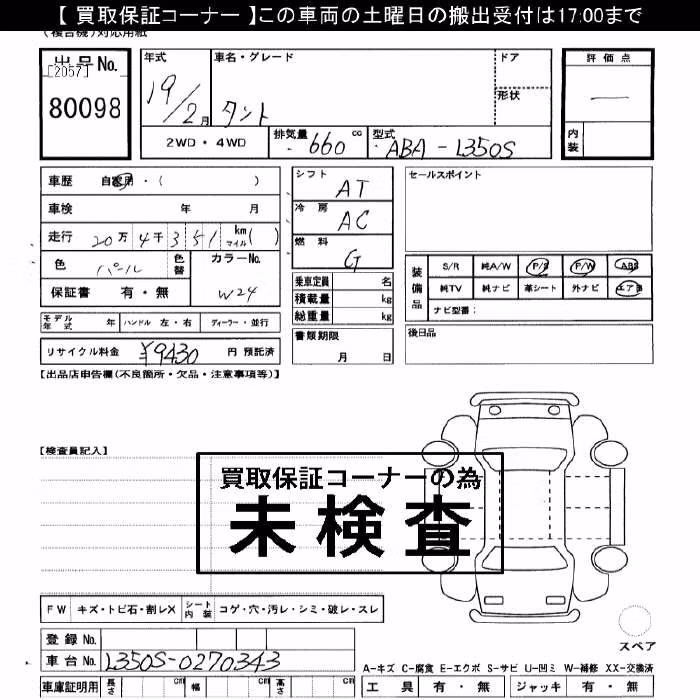 【 買取保証コーナー 】この車両の土曜日の搬出受付は17:00まで
(複合機)対応用紙
出品No. 年式 車名・グレード ドア 評価点
[2057]
80098 19/2月 タント 形状 —
2WD・4WD 排気量 660 cc 型式 ABA-L350S 内装
車歴 自家用・( ) シフト AT セールスポイント
車検 年 月 冷房 AC
走行 20万4千351 km マイル( ) 燃料 G
色 パール 色替 カラーNo. W24
装備品 S/R 純A/W P/S P/W ABS
純TV 純ナビ 革シート 外ナビ エアB
ナビ型番:
保証書 有・無 乗車定員 名
積載量 kg
総重量 kg
モデル年式 年 ハンドル 左・右 ディーラー・並行 書類期限 月 日 後日品
リサイクル料金 ¥9430 円 預託済
【出品店申告欄(不良箇所・欠品・注意事項等)】
【検査員記入】
買取保証コーナーの為
未検査
FW キズ・トビ石・割レX シート内装 コゲ・穴・汚レ・シミ・破レ・スレ
登録No.
スペア
車台No. L350S-0270343
A-キズ C-腐食 E-エクボ S-サビ U-凹ミ W-補修 XX-交換済
車庫証明用 長さ cm 幅 cm 高さ cm 工具 有・無 ジャッキ 有・無